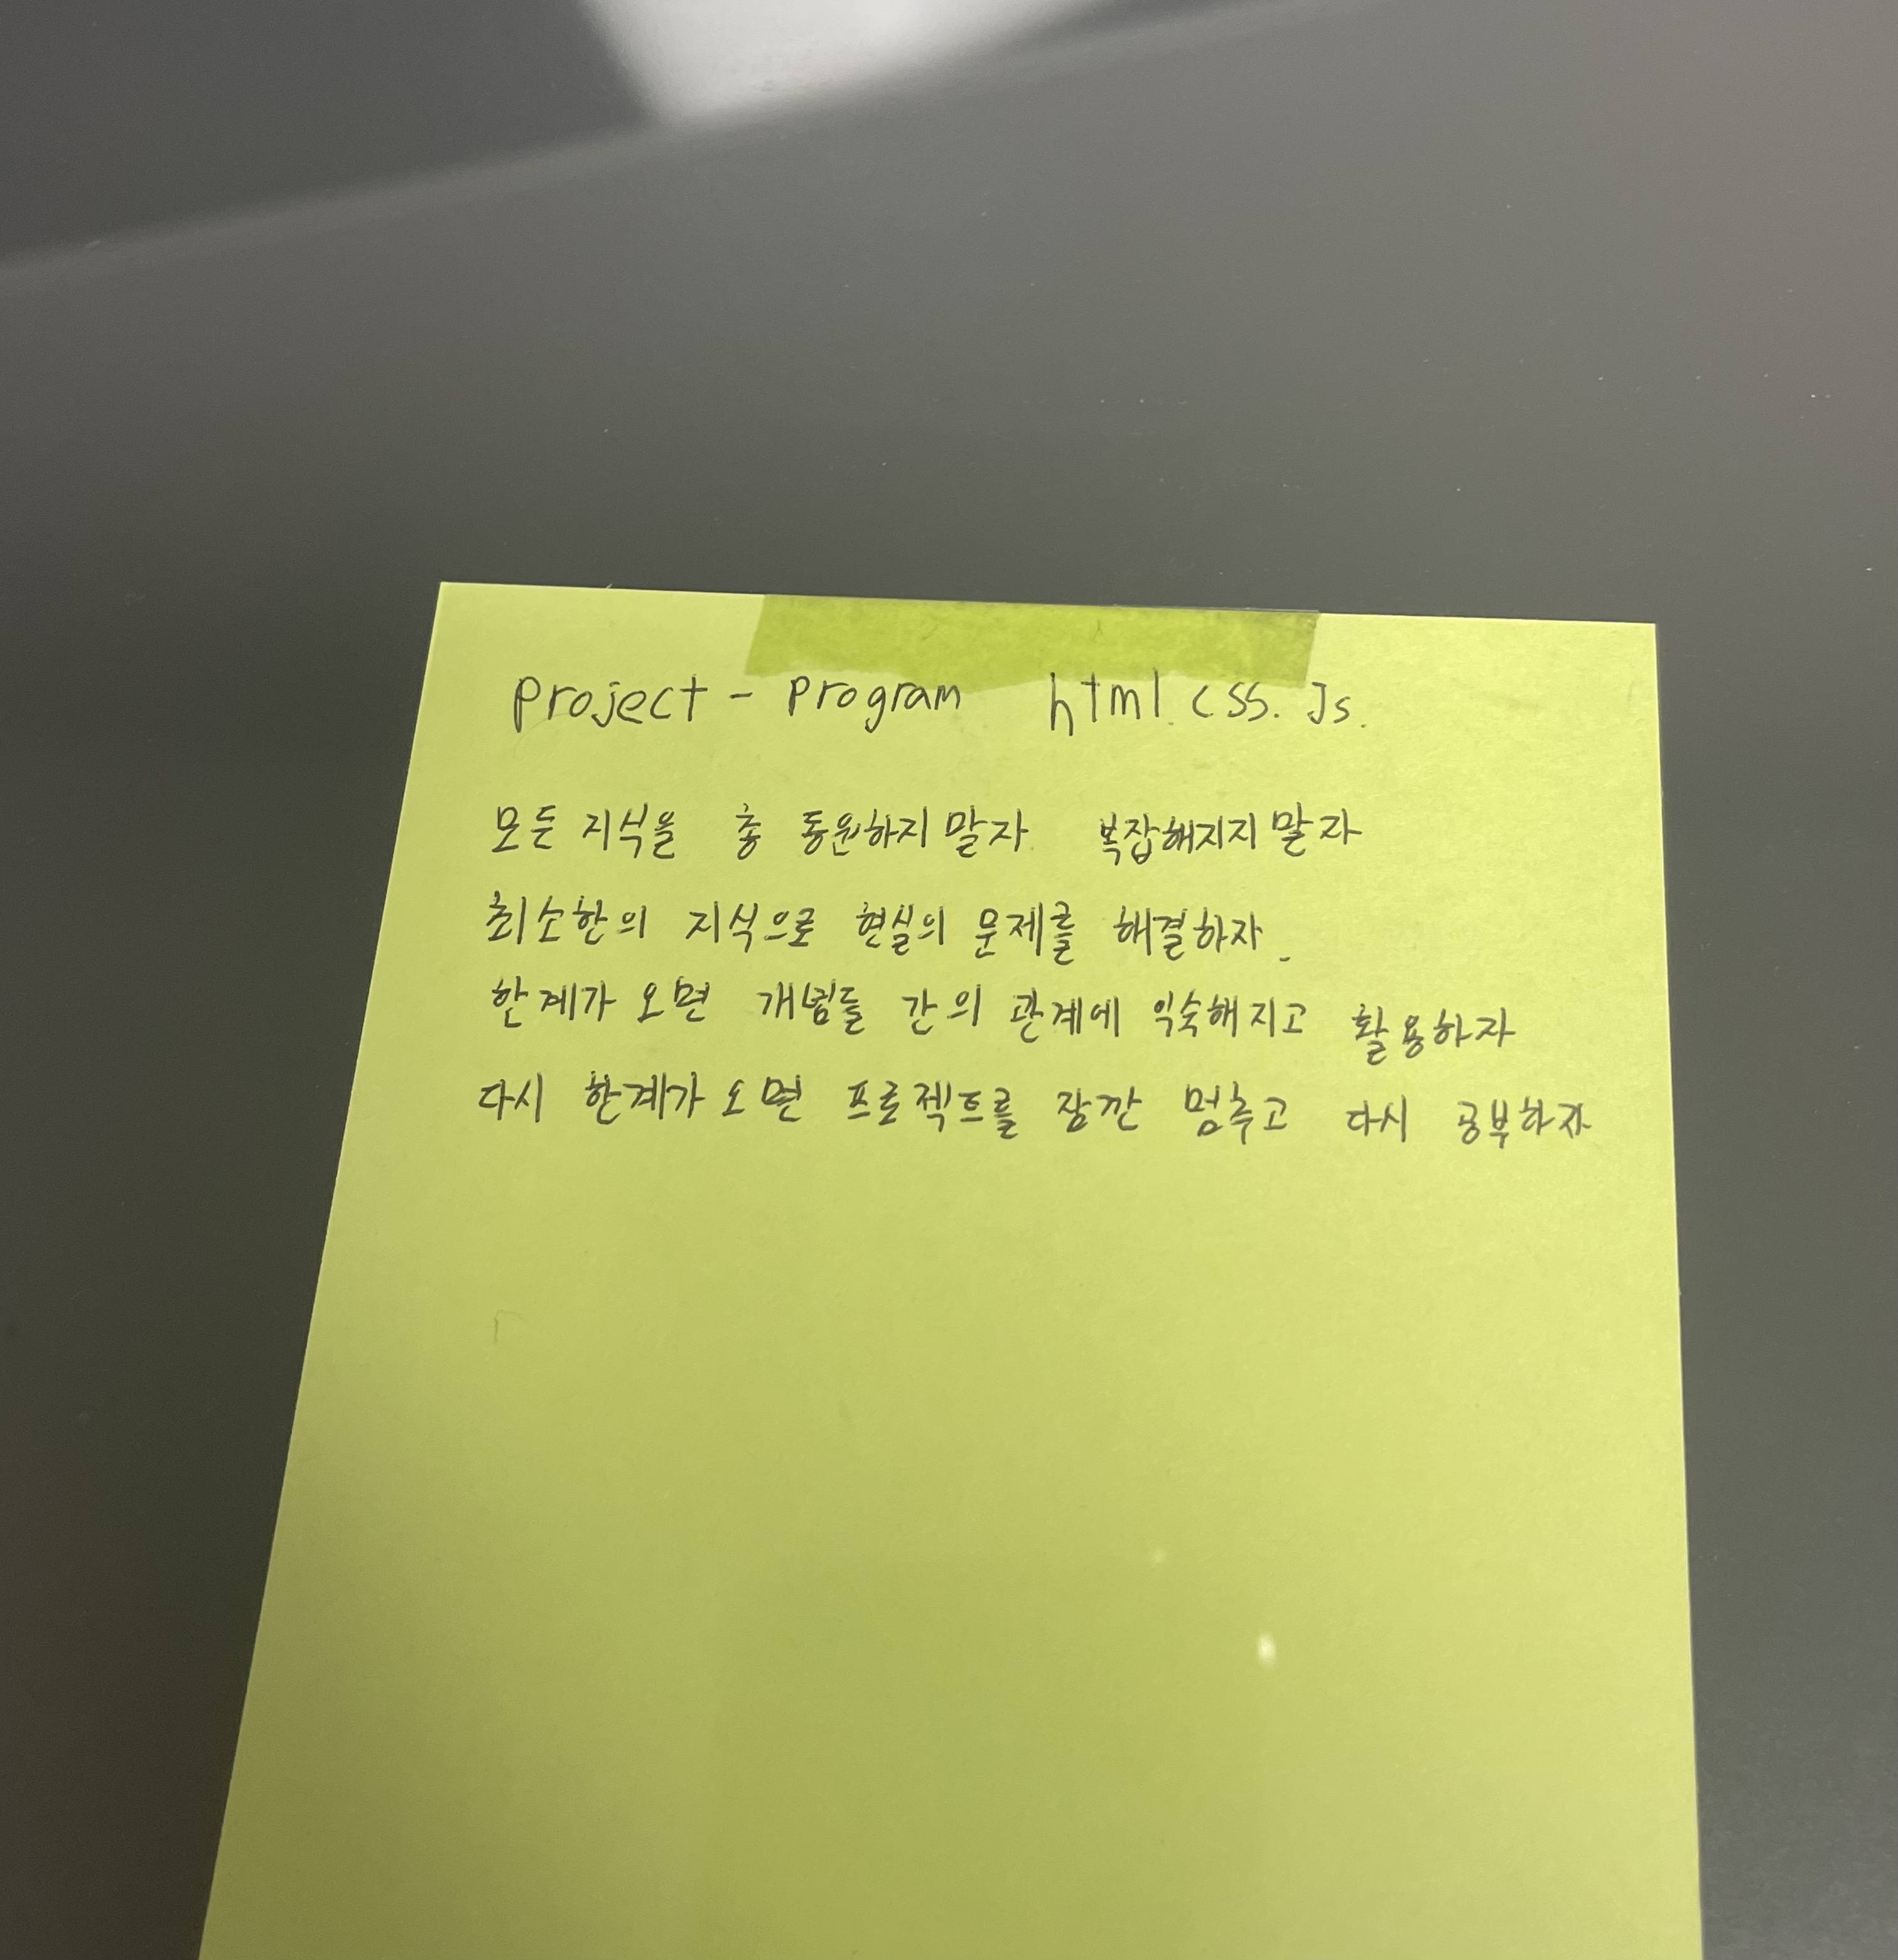 project - program html. css. Js.
모든 지식을 총 동원하지 말자. 복잡해지지 말자
최소한의 지식으로 현실의 문제를 해결하자.
한계가 오면 개념들 간의 관계에 익숙해지고 활용하자
다시 한계가 오면 프로젝트를 잠깐 멈추고 다시 공부하자